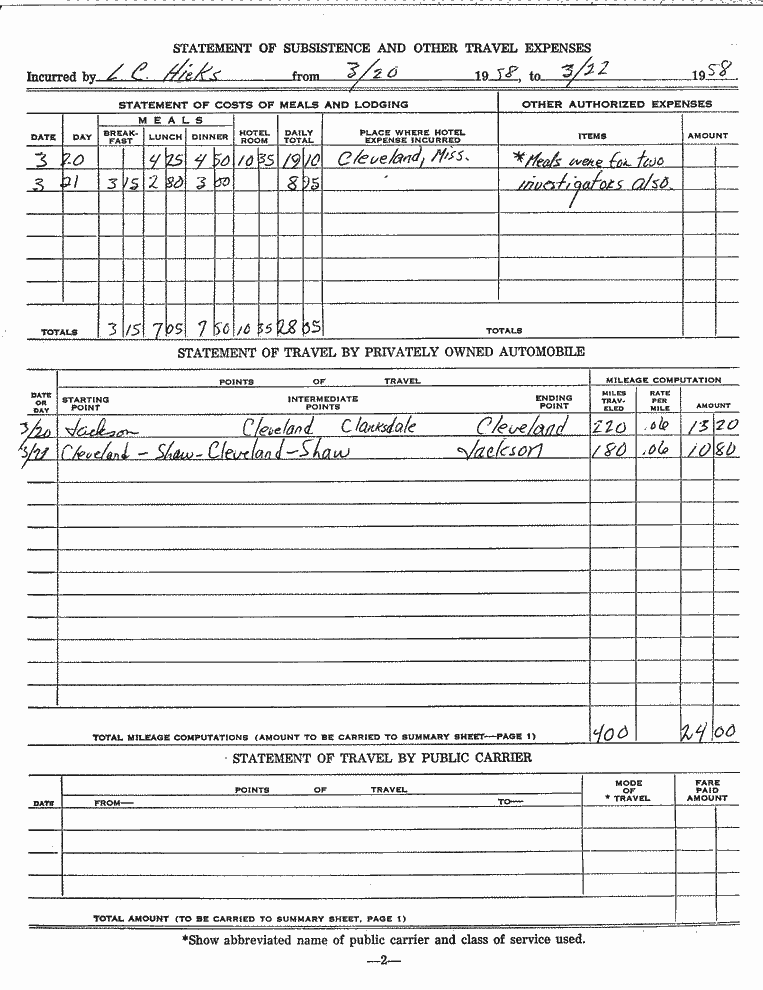 STATEMENT OF SUBSISTENCE AND OTHER TRAVEL EXPENSES
Incurred by L C. Hicks from 3/20 1958, to 3/22 1958
STATEMENT OF COSTS OF MEALS AND LODGING OTHER AUTHORIZED EXPENSES
DATE DAY MEALS BREAK-FAST LUNCH DINNER HOTEL ROOM DAILY TOTAL PLACE WHERE HOTEL EXPENSE INCURRED ITEMS AMOUNT
3 20 4 25 4 50 10 35 19 10 Cleveland, Miss. *Meals were for two
3 21 3 15 2 80 3 00 8 95 investigators also.
TOTALS 3 15 7 05 7 50 10 35 28 05 TOTALS
STATEMENT OF TRAVEL BY PRIVATELY OWNED AUTOMOBILE
POINTS OF TRAVEL MILEAGE COMPUTATION
DATE OR DAY STARTING POINT INTERMEDIATE POINTS ENDING POINT MILES TRAV-ELED RATE PER MILE AMOUNT
3/20 Jackson Cleveland Clarksdale Cleveland 220 .06 13 20
Cleveland - Shaw - Cleveland - Shaw Jackson 180 .06 10 80
TOTAL MILEAGE COMPUTATIONS (AMOUNT TO BE CARRIED TO SUMMARY SHEET—PAGE 1) 400 24 00
STATEMENT OF TRAVEL BY PUBLIC CARRIER
POINTS OF TRAVEL
DATE FROM— TO— MODE OF * TRAVEL FARE PAID AMOUNT
TOTAL AMOUNT (TO BE CARRIED TO SUMMARY SHEET, PAGE 1)
*Show abbreviated name of public carrier and class of service used.
—2—